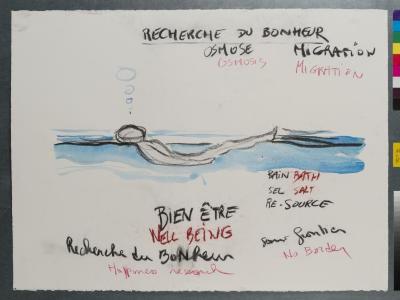 RECHERCHE DU BONHEUR
OSMOSE MIGRATION
OSMOSIS MIGRATION
BAIN BATH
SEL SALT
RE-SOURCE
BIEN ÊTRE
WELL BEING
Recherche du BONHEUR
Happiness research
sans frontier
No Border